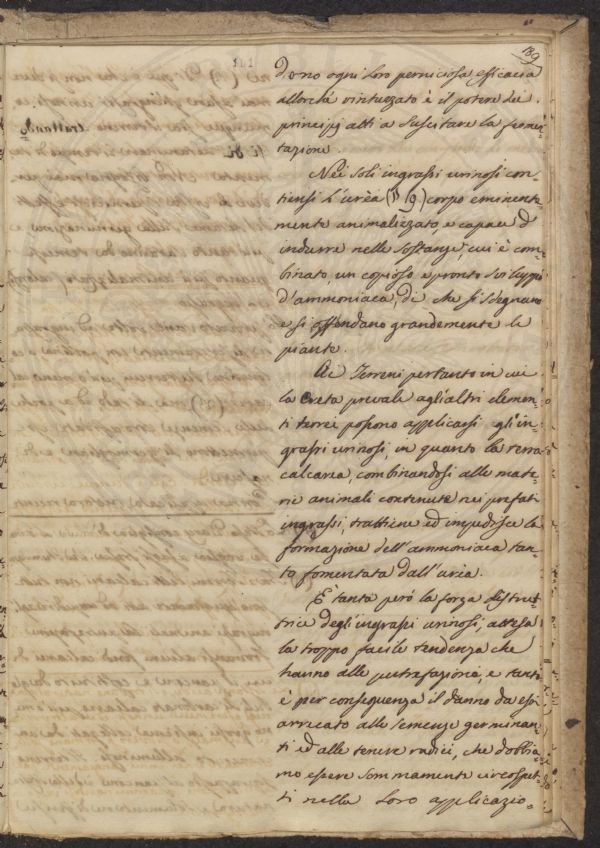 189
141
dono ogni loro perniciosa efficacia
allorchè rintuzzato è il potere dei
principj atti a suscitare la fermen=
tazione.
Nei soli ingrassi urinosi con=
tiensi l'urèa (§ 9.) corpo eminente=
mente animalizzato, e capace d'
indurre nelle sostanze, cui è com=
binato, un copioso, e pronto sviluppo
d'ammoniaca, di che si sdegnano
e si offendano grandemente le
piante.
Ai Terreni pertanto in cui
la Creta prevale agli altri elemen=
ti terrei possono applicarsi gl'in=
grassi urinosi, in quanto la terra
calcarea, combinandosi alle mate=
rie animali contenute nei prefati
ingrassi, trattiene ed impedisce la
formazione dell'ammoniaca tan=
to fomentata dall'urèa.
È tanta però la forza distrut=
trice degl'ingrassi urinosi, attesa
la troppo facile tendenza che
hanno alla putrefazione, e tanto
è per conseguenza il danno da essi
arrecato alle semenze germinan=
ti ed alle tenere radici, che dobbia=
mo essere sommamente circospet=
ti nella loro applicazio=